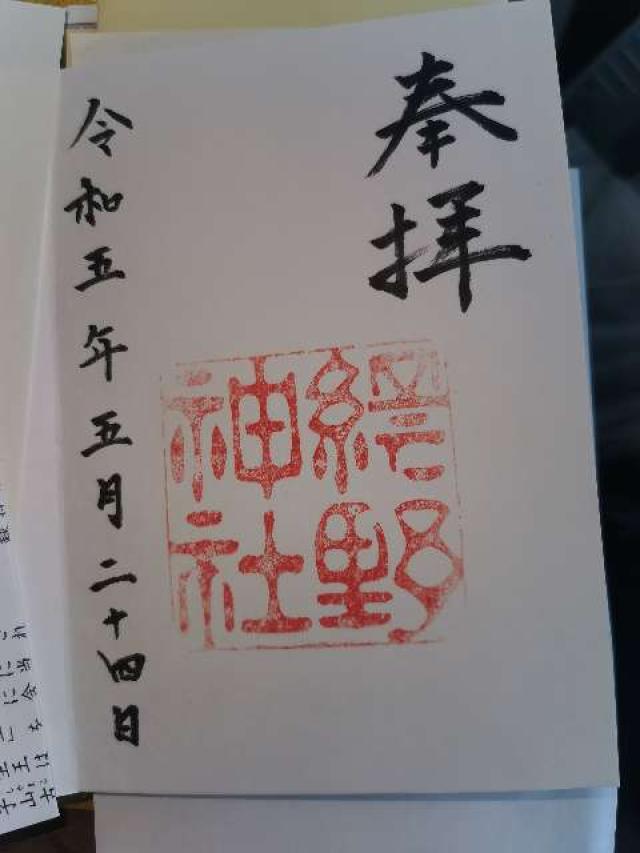 奉拝
野
神社
令和五年五月二十四日